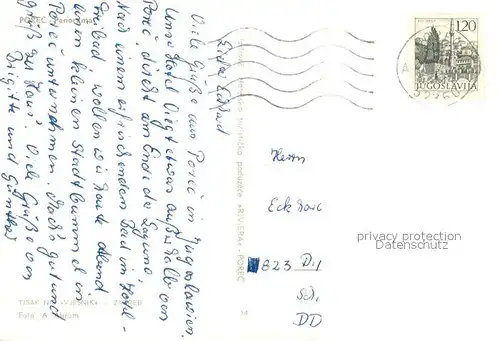 POREČ Panorama
Lieber Eckhard
Viele Grüße aus Poreč in Jugoslawien.
Unser Hotel liegt etwas außerhalb von
Poreč, direkt am Ende der Lagune.
Nach einem erfrischenden Bad im Hotel-
freibad wollen wir heute Abend
einen kleinen Stadtbummel in
Poreč unternehmen. Macht's gut und
grüß zu Haus'. Viele Grüße von
Brigitte und Günther
TISAK »VJESNIK« - ZAGREB
Foto: A.
turističko poduzeće »RIVIERA« - POREČ
1.20
JUGOSLAVIJA
A
Herrn
Eck
823 D.
DD
privacy protection
Datenschutz